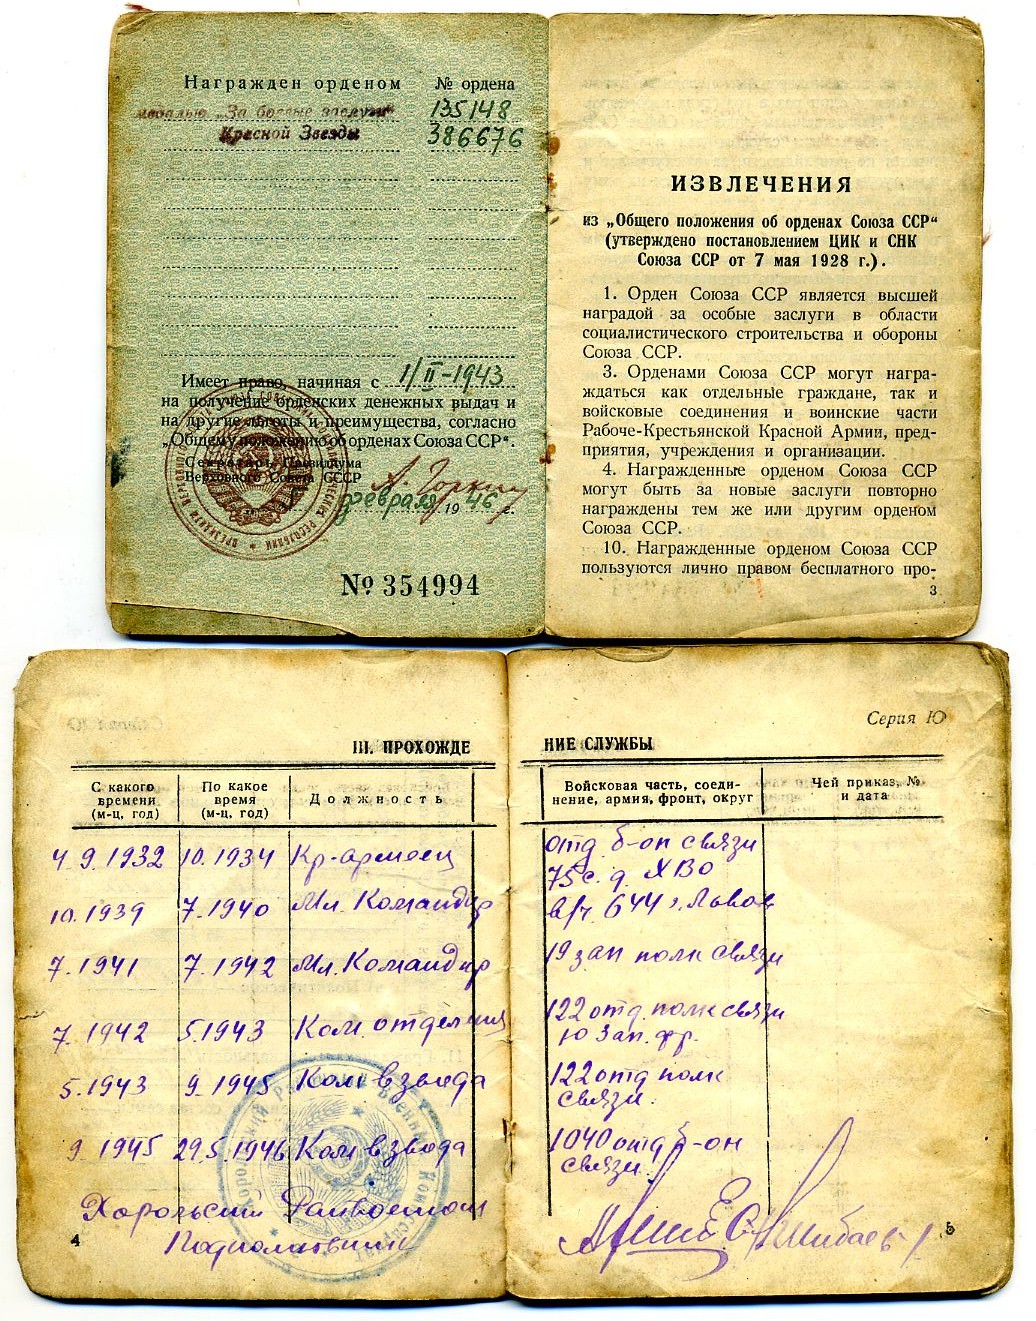 Награжден орденом № ордена
медалью „За боевые заслуги“ 135148
Красной Звезды 386676
Имеет право, начиная с 1/II-1943
на получение орденских денежных выдач и
на другие льготы и преимущества, согласно
„Общему положению об орденах Союза ССР“.
Секретарь Президиума
Верховного Совета СССР А. Горкин
февраля 1946 г.
№ 354994
ИЗВЛЕЧЕНИЯ
из „Общего положения об орденах Союза ССР“
(утверждено постановлением ЦИК и СНК
Союза ССР от 7 мая 1928 г.).
1. Орден Союза ССР является высшей
наградой за особые заслуги в области
социалистического строительства и обороны
Союза ССР.
3. Орденами Союза ССР могут награ-
ждаться как отдельные граждане, так и
войсковые соединения и воинские части
Рабоче-Крестьянской Красной Армии, пред-
приятия, учреждения и организации.
4. Награжденные орденом Союза ССР
могут быть за новые заслуги повторно
награждены тем же или другим орденом
Союза ССР.
10. Награжденные орденом Союза ССР
пользуются лично правом бесплатного про-
3
Серия Ю
III. ПРОХОЖДЕНИЕ СЛУЖБЫ
С какого времени (м-ц, год) По какое время (м-ц, год) Должность Войсковая часть, соеди-нение, армия, фронт, округ Чей приказ, № и дата
4.9.1932 10.1934 Кр-армеец отд. б-он связи
75 с.д. ХВО
10.1939 7.1940 Мл. Командир в/ч. 644 г. Львов
7.1941 7.1942 Мл. Командир 19 зап полк связи
7.1942 5.1943 Ком. отделения 122 отд. полк связи
Ю Зап. фр.
5.1943 9.1945 Ком взвода 122 отд полк
связи.
9.1945 29.5.1946 Ком взвода 1040 отд б-он
связи.
Хорольский Райвоенком
Подполковник
4
5